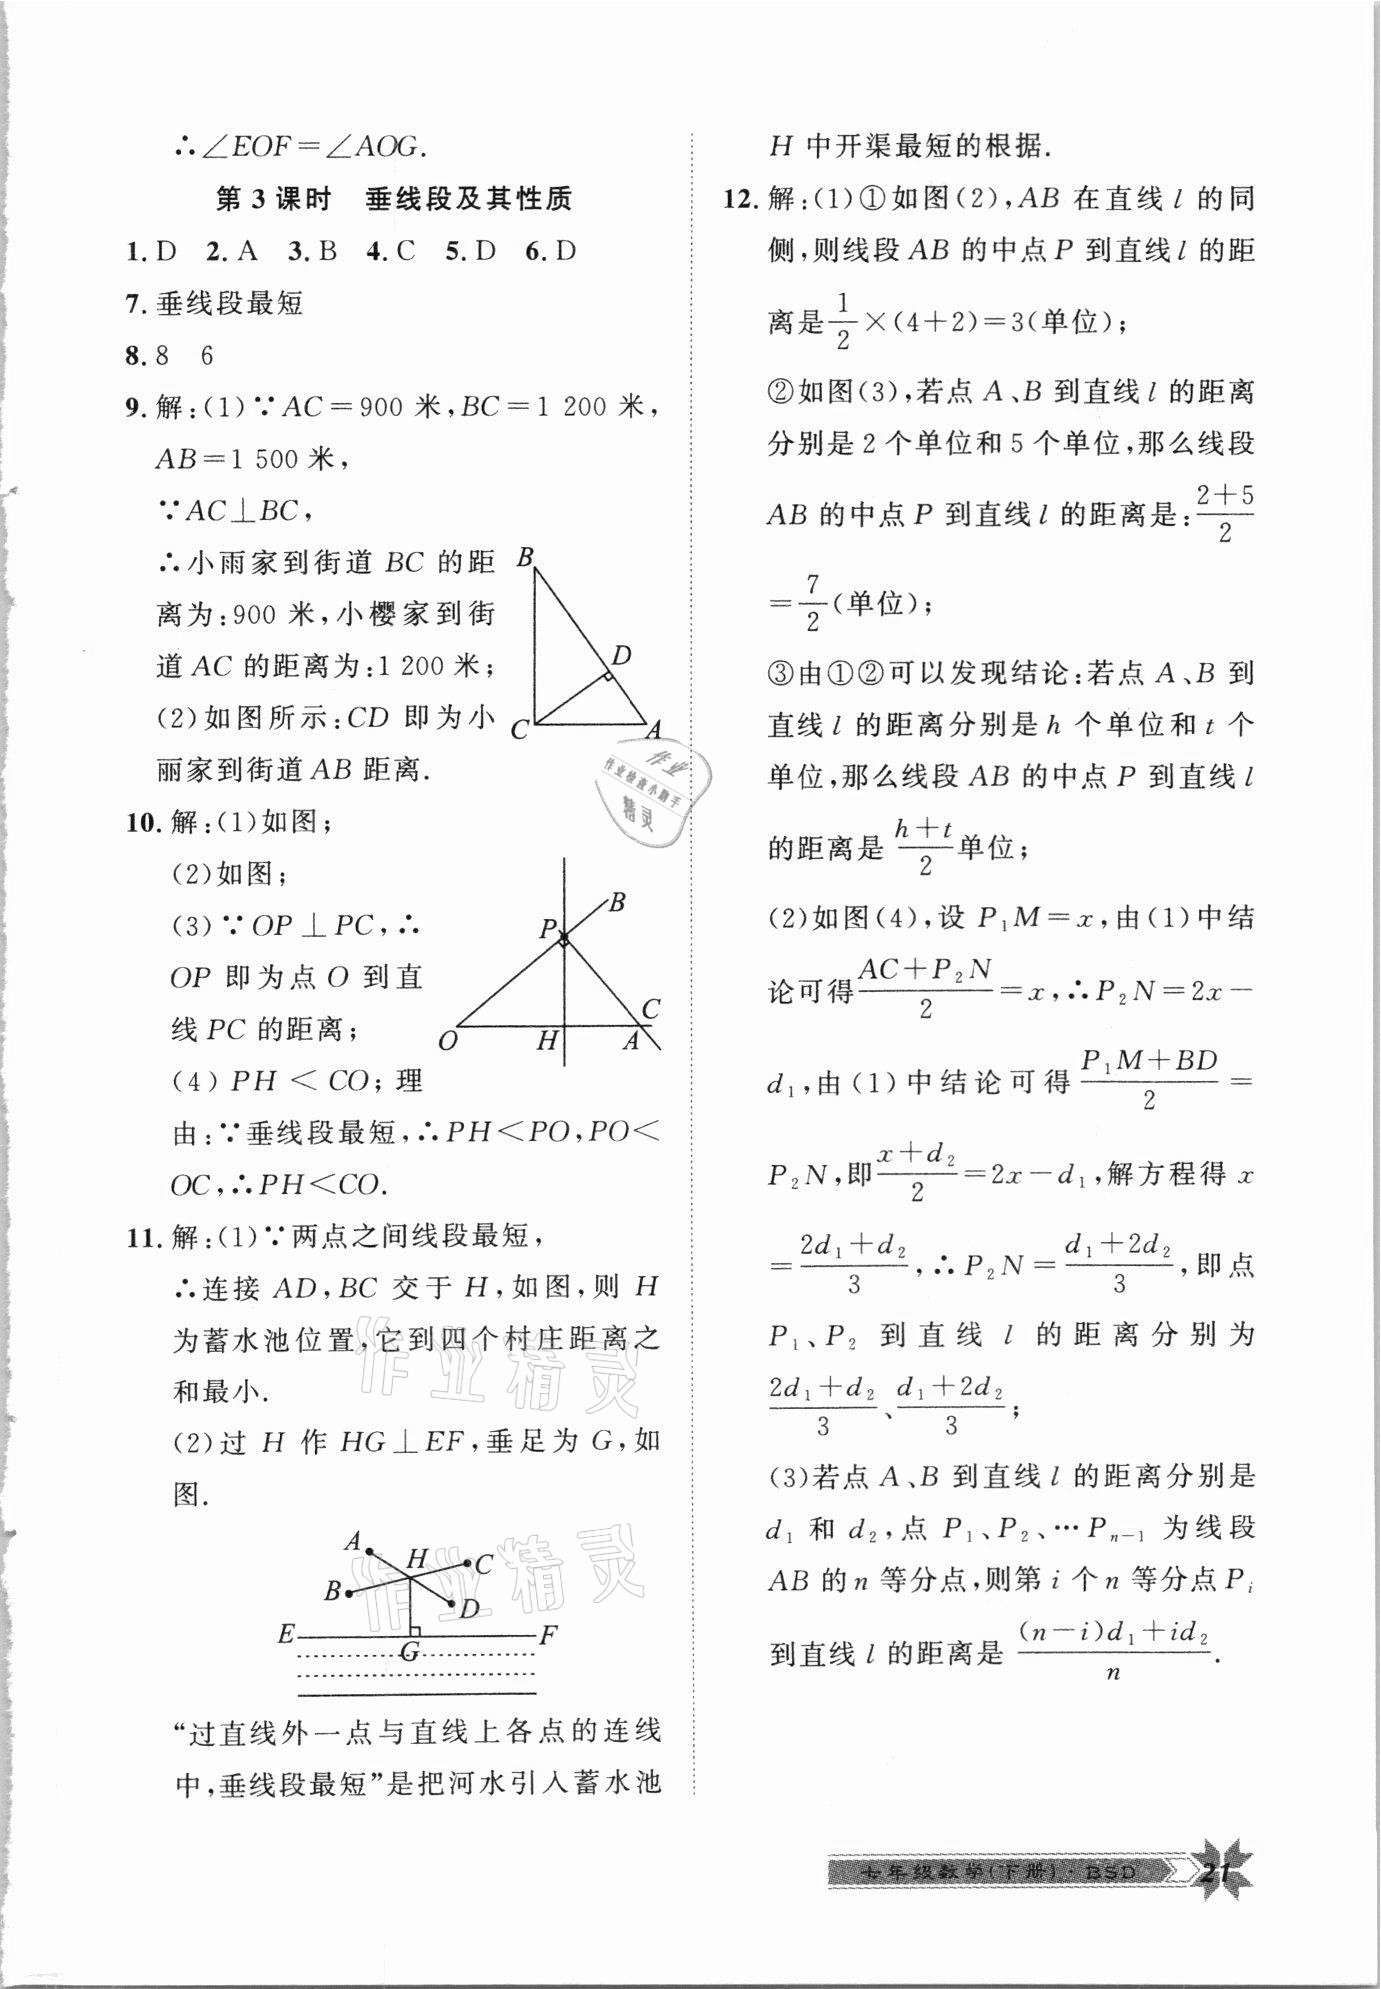 ∴∠EOF=∠AOG.
第3课时 垂线段及其性质
1. D 2. A 3. B 4. C 5. D 6. D
7. 垂线段最短
8. 8 6
9. 解:(1)∵AC=900 米,BC=1 200 米,
AB=1 500 米,
∵AC⊥BC,
∴小雨家到街道 BC 的距
离为:900 米,小樱家到街
道 AC 的距离为:1 200 米;
(2)如图所示:CD 即为小
丽家到街道 AB 距离.
B
D
C
A
10. 解:(1)如图;
(2)如图;
(3)∵OP⊥PC,∴
OP 即为点 O 到直
线 PC 的距离;
(4) PH < CO; 理
由:∵垂线段最短,∴PH<PO,PO<
OC,∴PH<CO.
B
P
C
O
H
A
11. 解:(1)∵两点之间线段最短,
∴连接 AD,BC 交于 H,如图,则 H
为蓄水池位置,它到四个村庄距离之
和最小.
(2)过 H 作 HG⊥EF,垂足为 G,如
图.
A
H
C
B
D
E
F
G
“过直线外一点与直线上各点的连线
中,垂线段最短”是把河水引入蓄水池
H 中开渠最短的根据.
12. 解:(1)①如图(2),AB 在直线 l 的同
侧,则线段 AB 的中点 P 到直线 l 的距
离是 1/2×(4+2)=3(单位);
②如图(3),若点 A、B 到直线 l 的距离
分别是 2 个单位和 5 个单位,那么线段
AB 的中点 P 到直线 l 的距离是:(2+5)/2
=7/2(单位);
③由①②可以发现结论:若点 A、B 到
直线 l 的距离分别是 h 个单位和 t 个
单位,那么线段 AB 的中点 P 到直线 l
的距离是 (h+t)/2 单位;
(2)如图(4),设 P₁M=x,由(1)中结
论可得 (AC+P₂N)/2=x,∴P₂N=2x-
d₁,由(1)中结论可得 (P₁M+BD)/2=
P₂N,即 (x+d₂)/2=2x-d₁,解方程得 x
=(2d₁+d₂)/3,∴P₂N=(d₁+2d₂)/3,即点
P₁、P₂ 到直线 l 的距离分别为
(2d₁+d₂)/3、(d₁+2d₂)/3;
(3)若点 A、B 到直线 l 的距离分别是
d₁ 和 d₂,点 P₁、P₂、…Pₙ₋₁ 为线段
AB 的 n 等分点,则第 i 个 n 等分点 Pᵢ
到直线 l 的距离是 ((n-i)d₁+id₂)/n.
作业
作业检查小助手
精灵
作业精灵
作业精灵
七年级数学(下册)·BSD
21